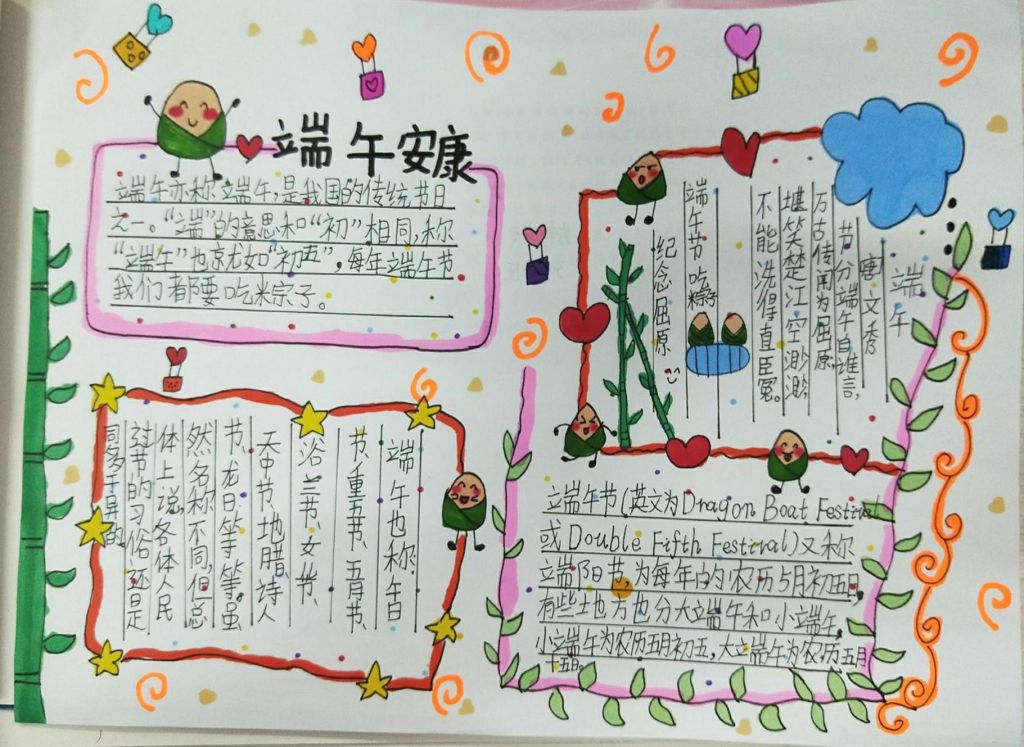 端午安康
端午亦称端午,是我国的传统节日
之一。“端”的意思和“初”相同,称
“端午”也就如“初五”,每年端午节
我们都要吃米宗子。
端午
唐文秀
节分端午自谁言,
万古传闻为屈原,
堪笑楚江空渺渺,
不能洗得直臣冤。
端午节吃粽子
纪念屈原
端午也称午日
节、重五节、五月节、
浴兰节、女儿节、
天中节、地腊、诗人
节、龙日等等。虽
然名称不同,但总
体上说各体人民
过节的习俗还是
同多于异的
端午节(英文为Dragon Boat Festival
或Double Fifth Festival)又称
端阳节,为每年的农历5月初五,
有些地方也分大端午和小端午。
小端午为农历五月初五,大端午为农历五月
十五日。